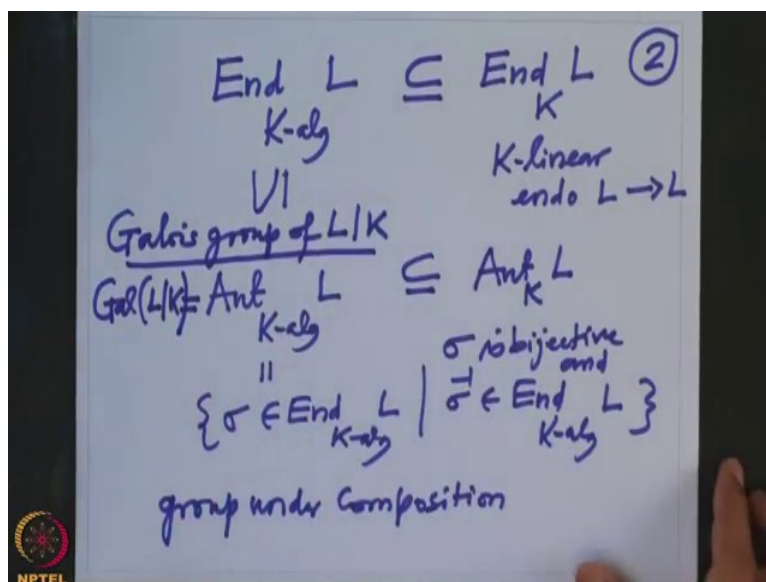 End L ⊆ End L ②
K-alg K
K-linear
endo L → L
∪|
Galois group of L/K
Gal(L/K) = Aut L ⊆ Aut L
K-alg K
||
{σ ∈ End L | σ is bijective and σ⁻¹ ∈ End L}
K-alg K-alg
group under composition
NPTEL